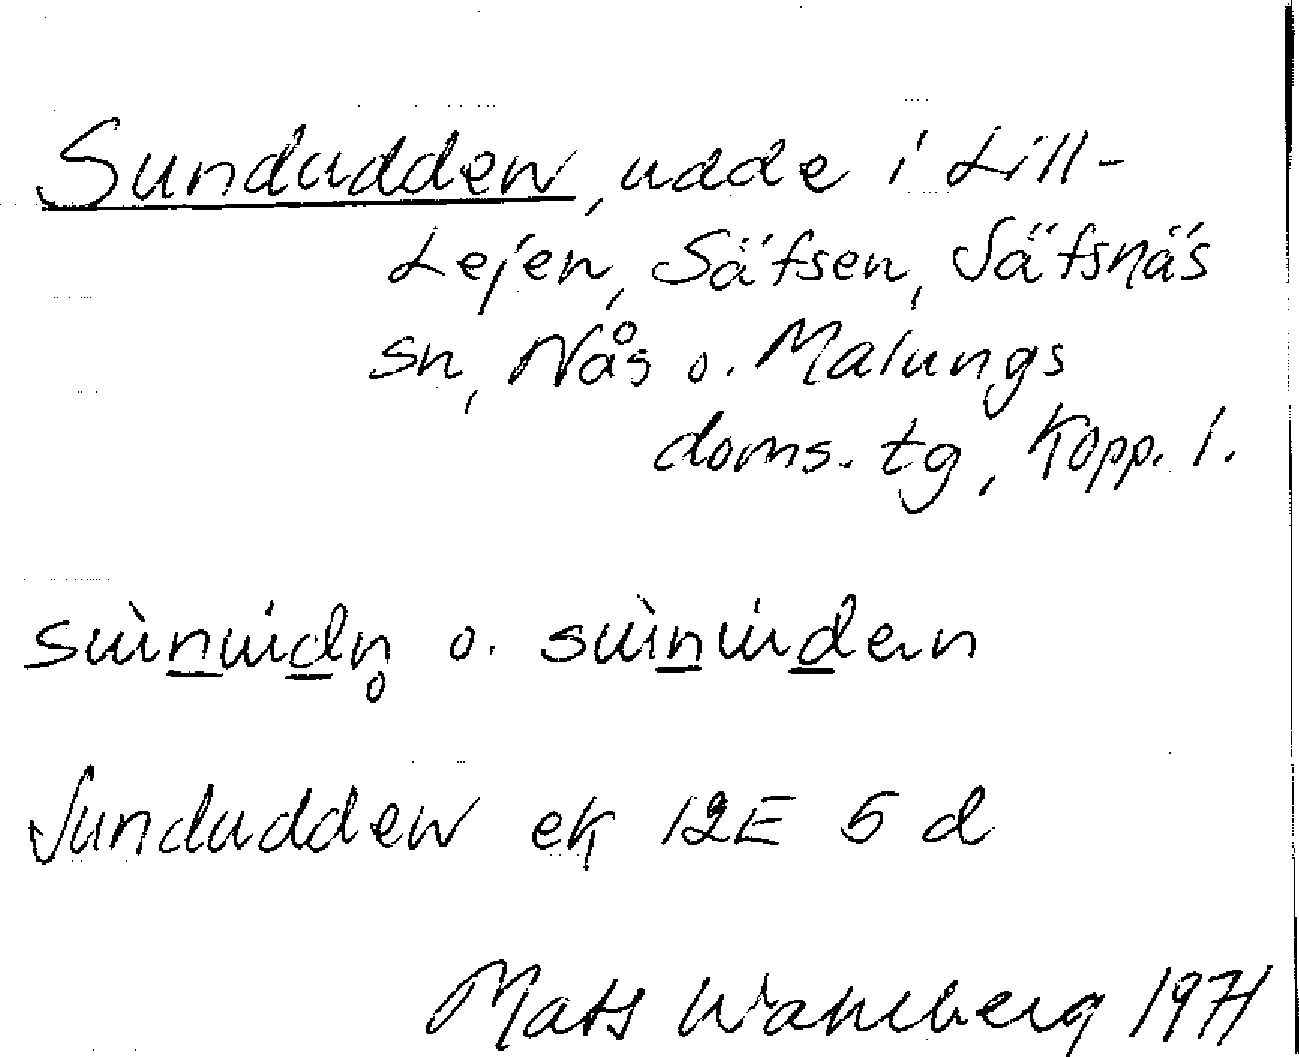 Sundudden, udde i Lill-
Lejen, Säfsen, Säfsnäs
sn, Nås o. Malungs
doms. tg, Kopp. l.
o.
Sundudden ek 12E 5 d
Mats Wahlberg 1971